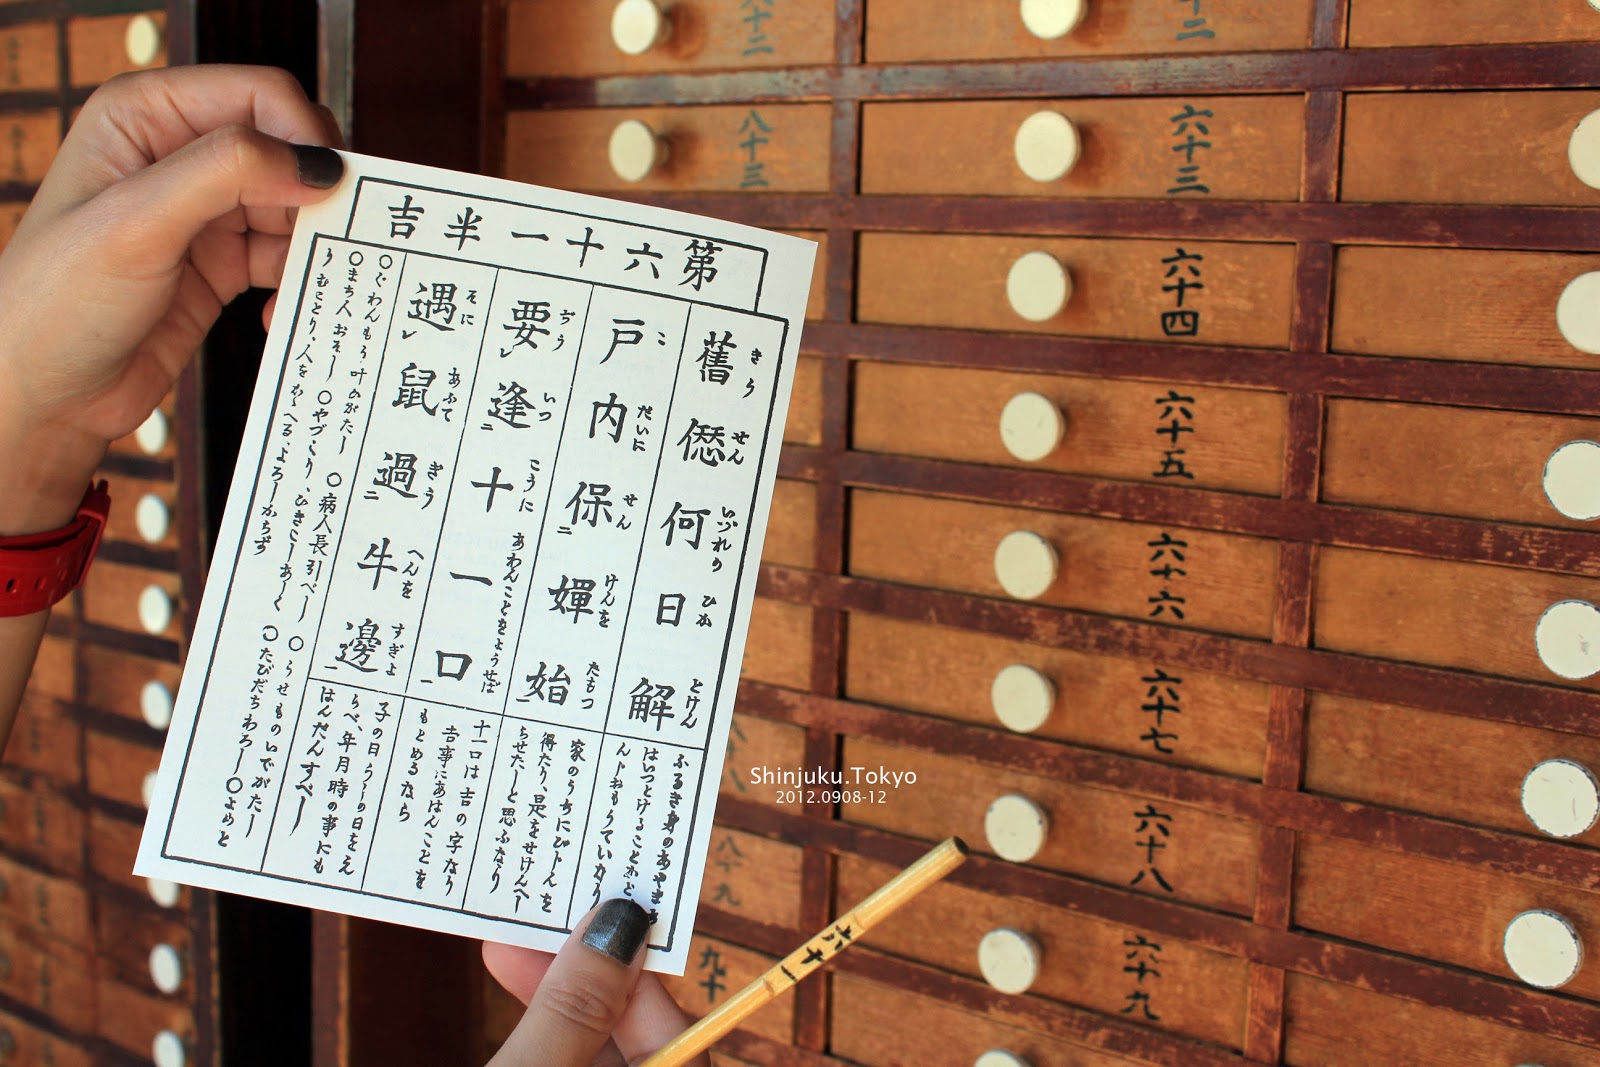 第六十一半吉
舊愆何日解
きう せん いづれの ひか とけん
戸内保嬋娟
こ だいに せん けんを たもつ
要逢十一口
ぢう いつ こうに あわんことをようせば
遇鼠過牛邊
そに あふて ぎう へんを すぎよ
ふるき身のあやまち
はいつとけることかと
家のうちにびじんを
得たり、是をせけんへ
と思ふなり
十一口は吉の字なり
吉事にあはんことを
もとめるなら
子の日うしの日をえ
らべ、年月時の事にも
はんだんすべし
○ぐわんもう叶ひがたし ○病人長引べし ○うせものいでがたし
○まち人おそし ○やづくり、ひきこしあしく ○たびだちわろし○よめと
り むことり、人をかゝへる、よろしからず
六十一
Shinjuku.Tokyo
2012.0908-12
六十三
六十四
六十五
六十六
六十七
六十八
六十九
八十二
八十三
八十九
九十